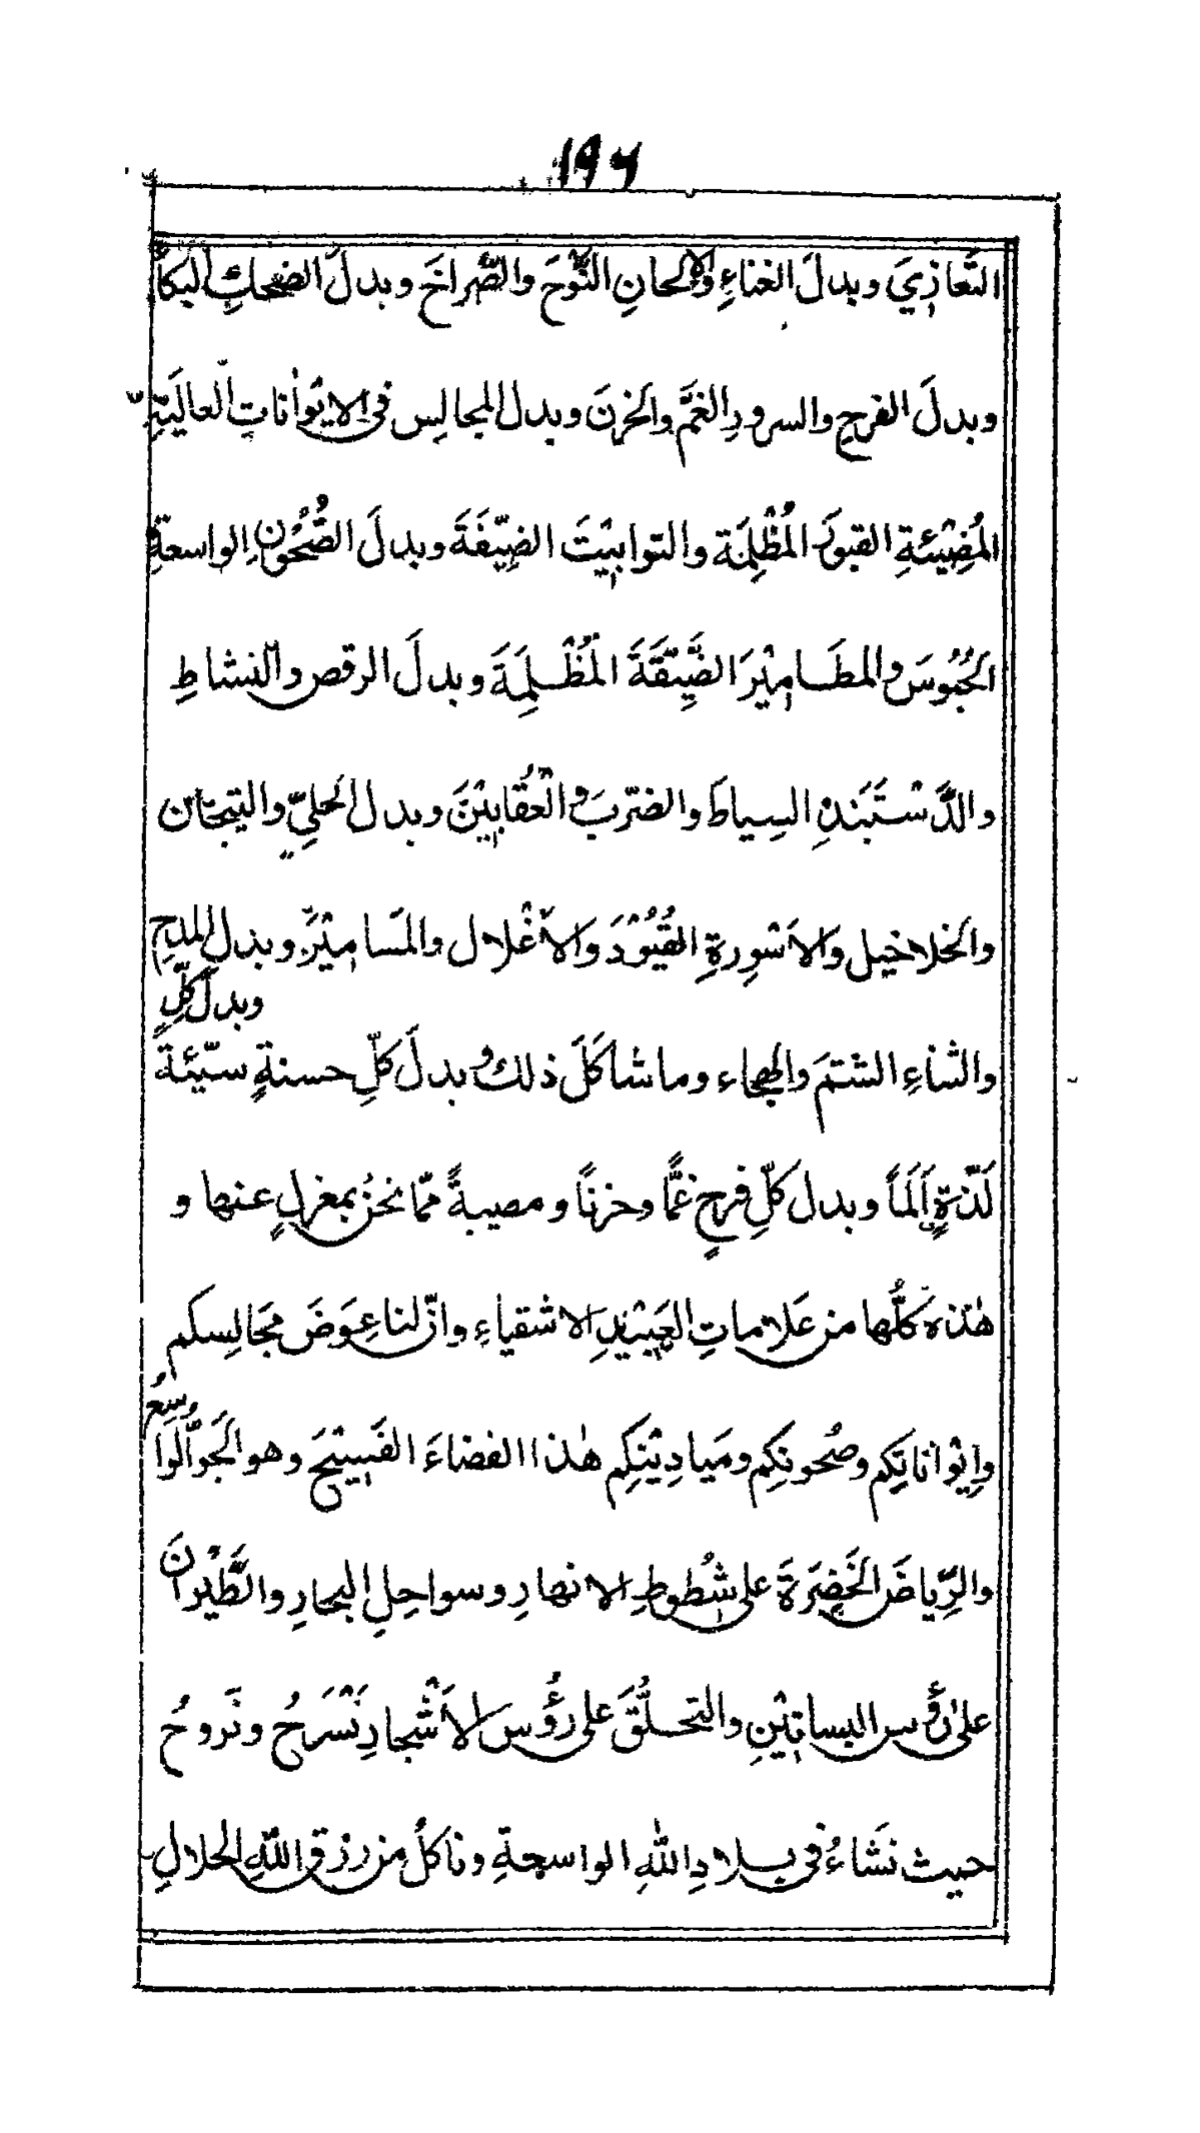 ١٩٦
التَّعازِيَ وبدلَ الغناءِ والالحانِ النَّوْحَ والصُّراخَ وبدلَ الضحكِ البكاَ
وبدلَ الفرحِ والسرورِ الغمَّ والحزنَ وبدل المجالِس فى الايْوانات العاليَةِ
المُضِيْئةِ القبورَ المُظْلِمَة والتوابيْتَ الضيِّقةَ وبدلَ الصُّحُوْنِ الواسعةِ
الحُبُوسَ والمطاميْرَ الضَّيِّقَةَ المُظْلِمَةَ وبدلَ الرقص والنشاطِ
والدَّسْتَبَندِ السِياطَ والضّربَ والعُقابِيْنَ وبدل الحليِّ والتيجان
والخلاخيل والاَسْوِرةِ القُيُوْدَ والاَغْلال والمَسامِيْرَ وبدل المدحِ
والثناءِ الشتمَ والهجاء وما شاكَلَ ذلك وبدلَ كلِّ حسنةٍ سيّئةً
وبدلَ كلِّ
لَذّةٍ اَلَماً وبدل كلِّ فرحٍ غمًّا وحزنًا ومصيبةً ممّا نحنُ بمعزلٍ عنها و
هٰذه كلُّها من عَلاماتِ العَبيْدِ الاشقياءِ وانّ لنا عِوَضَ مجَالِسكم
وايْواناتكِم وصُحونكِم ومَيادِيْنكِم هٰذا الفضاءَ الفَسِيْحَ وهو الجَوّ الواسِعُ
والرِّياضَ الخَضِرَةَ على شُطوطِ الانهارِ وسواحِلِ البحارِ والطَّيْرانَ
علىٰ رؤُس البساتيْنِ والتحلُّقَ على رؤُس الاَشْجارِ نَسْرَحُ ونَروحُ
حيث نَشاءُ فى بلادِ اللهِ الواسعةِ وناكلُ من رزقِ اللهِ الحلالِ